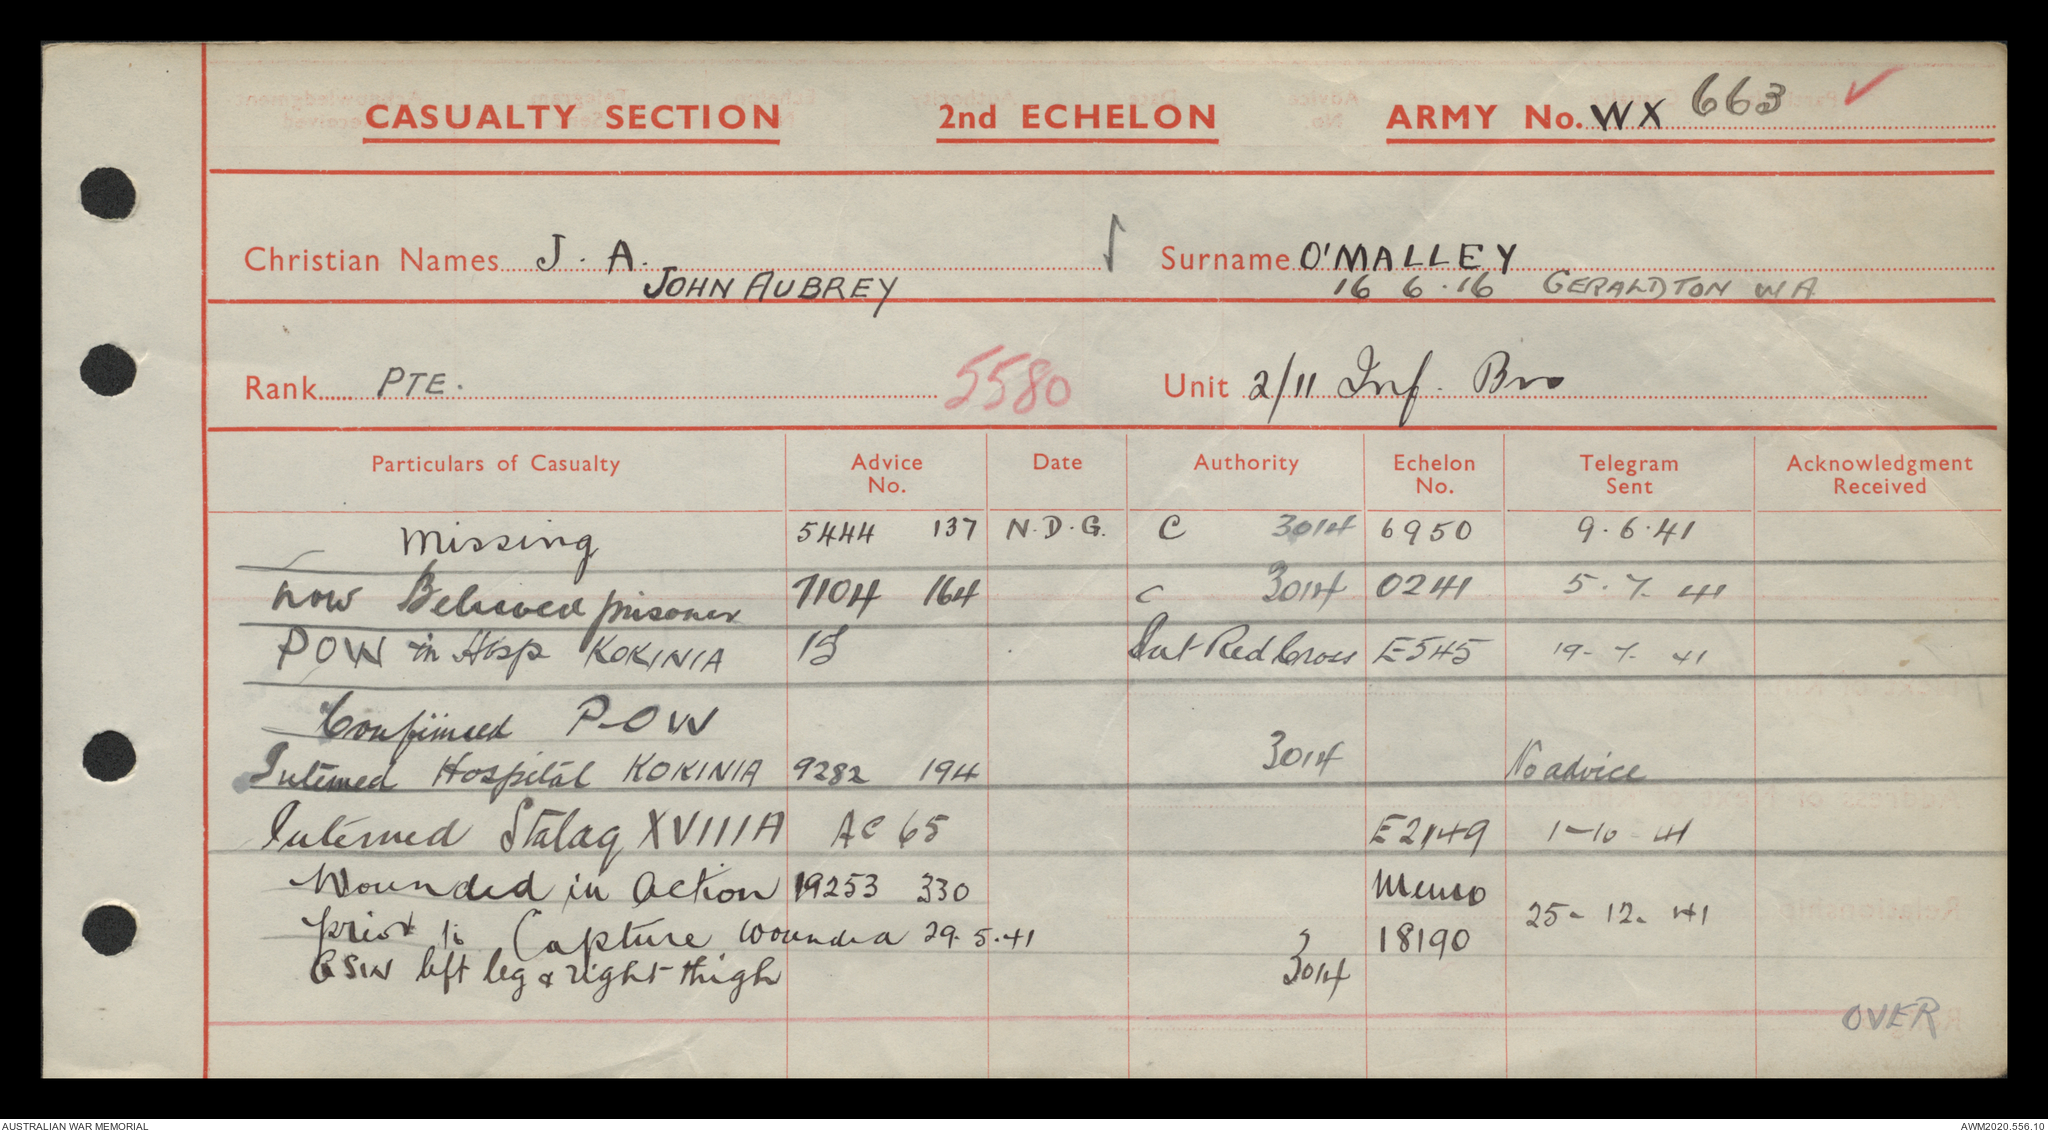 CASUALTY SECTION 2nd ECHELON ARMY No. WX 663
Christian Names J. A. Surname O'MALLEY
JOHN AUBREY 16 6.16 GERALDTON WA
Rank PTE. 5580 Unit 2/11 Inf. Bn
Particulars of Casualty Advice No. Date Authority Echelon No. Telegram Sent Acknowledgment Received
Missing 5444 137 N.D.G. C 3014 6950 9.6.41
now Believed prisoner 7104 164 C 3014 0241 5.7.41
POW in Hosp KOKINIA 15 Int Red Cross E545 19-7.41
Confirmed P-O W
Interned Hospital KOKINIA 9282 194 3014 No advice
Interned Stalag XVIIIA AC 65 E2149 1-10-41
Wounded in action 19253 330 Memo
prior to Capture wounded 29.5.41 18190 25-12-41
GSW left leg & right thigh 3014
OVER
AUSTRALIAN WAR MEMORIAL AWM2020.556.10